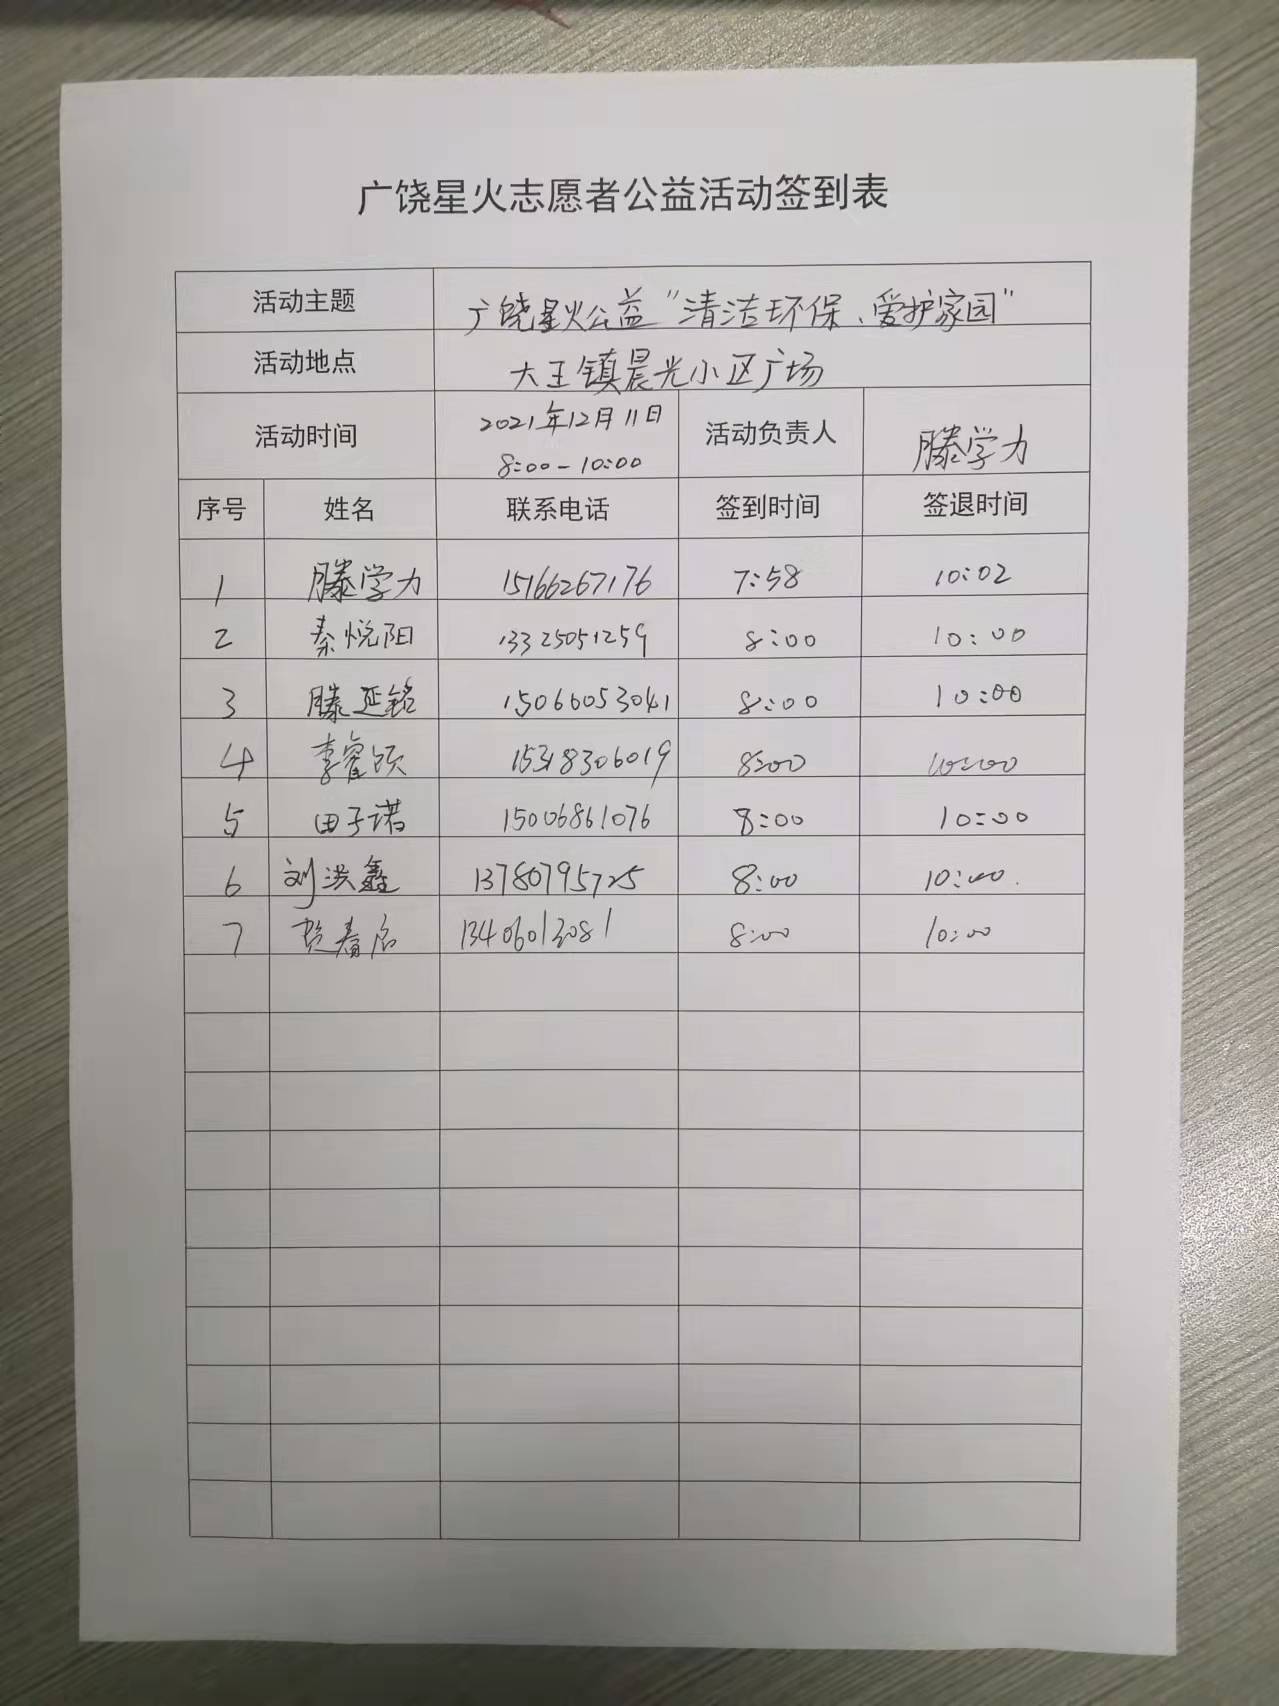 广饶星火志愿者公益活动签到表
活动主题 广饶星火公益"清洁环保、爱护家园"
活动地点 大王镇晨光小区广场
活动时间 2021年12月11日 8:00-10:00 活动负责人 滕学力
序号 姓名 联系电话 签到时间 签退时间
1 滕学力 15166267176 7:58 10:02
2 秦悦阳 13325051259 8:00 10:00
3 滕延铭 15066053041 8:00 10:00
4 李睿颀 15318306019 8:00 10:00
5 田子诺 15006861076 8:00 10:00
6 刘洪鑫 13780795725 8:00 10:00
7 春 13406013081 8:00 10:00